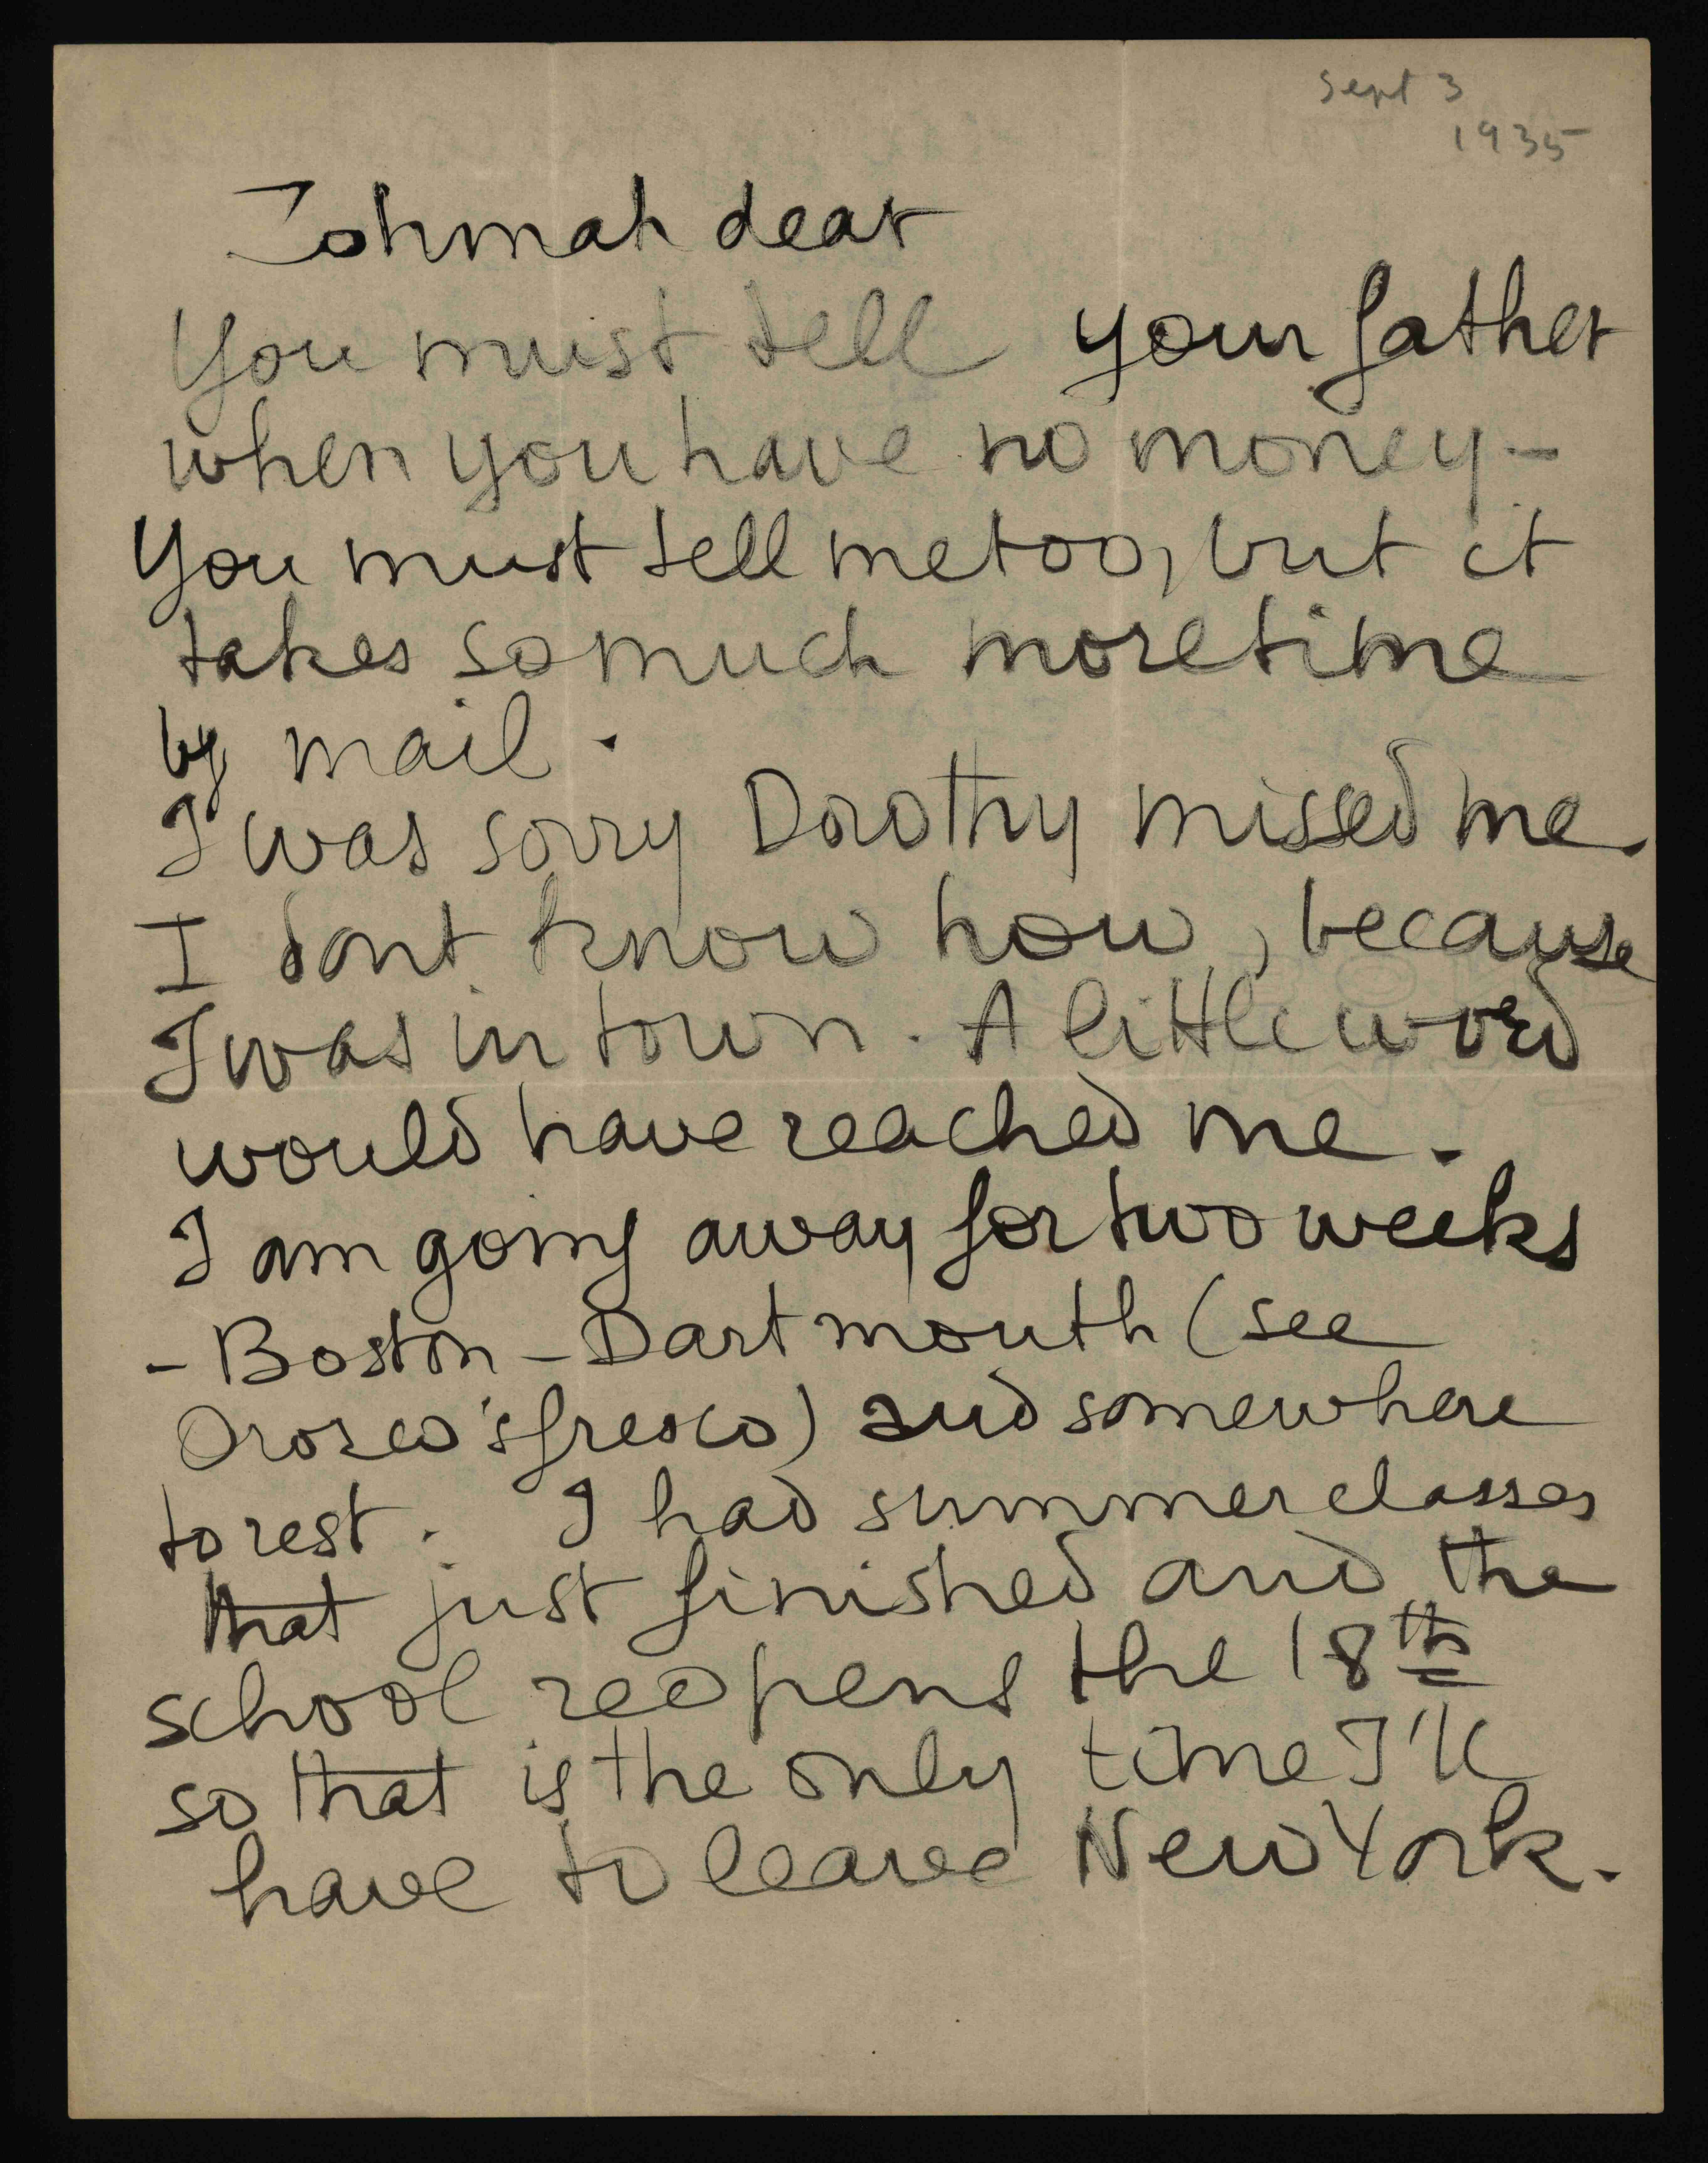 Sept 3
1935
Zohmah dear
You must tell your father
when you have no money -
You must tell me too, but it
takes so much more time
by mail.
I was sorry Dorothy missed me.
I dont know how, because
I was in town. A little word
would have reached me.
I am going away for two weeks
- Boston - Dartmouth (see
Orozco's fresco) and somewhere
to rest. I had summer classes
that just finished and the
school reopens the 18th
so that is the only time I'll
have to leave New York.